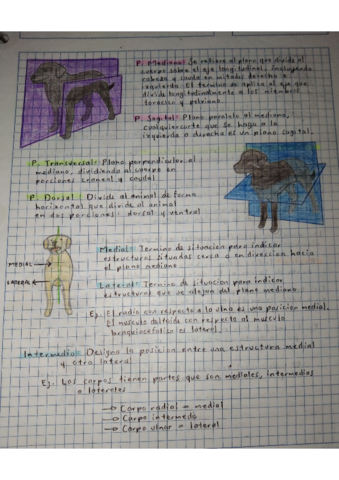 P. Mediano: Se refiere al plano que divide al
cuerpo sobre el eje longitudinal, incluyendo
cabeza y cauda en mitades derecha e
izquierda. El termino se aplica al eje que
divide longitudinalmente a los miembros
toracico y pelviano.
P. Sagital: Plano paralelo al mediano,
cualquier corte que se haga a la
izquierda o derecha es un plano sagital.
P. Transversal: Plano perpendicular al
mediano, dividiendo al cuerpo en
porciones craneal y caudal
P. Dorsal: Divide al animal de forma
horizontal que divide al animal
en dos porciones: dorsal y ventral
Medial: Termino de situación para indicar
estructuras situadas cerca o en dirección hacia
el plano mediano
MEDIAL
LATERAL
Lateral: Termino de situación para indicar
estructuras que se alejan del plano mediano
Ej. El radio con respecto a la ulna es una posición medial.
El musculo deltoide con respecto al musculo
braquiocefalico es lateral.
Intermedio: Designa la posición entre una estructura medial
y otra lateral
Ej. Los carpos tienen partes que son mediales, intermedios
o laterales
Carpo radial = medial
Carpo intermedo
Carpo ulnar = lateral